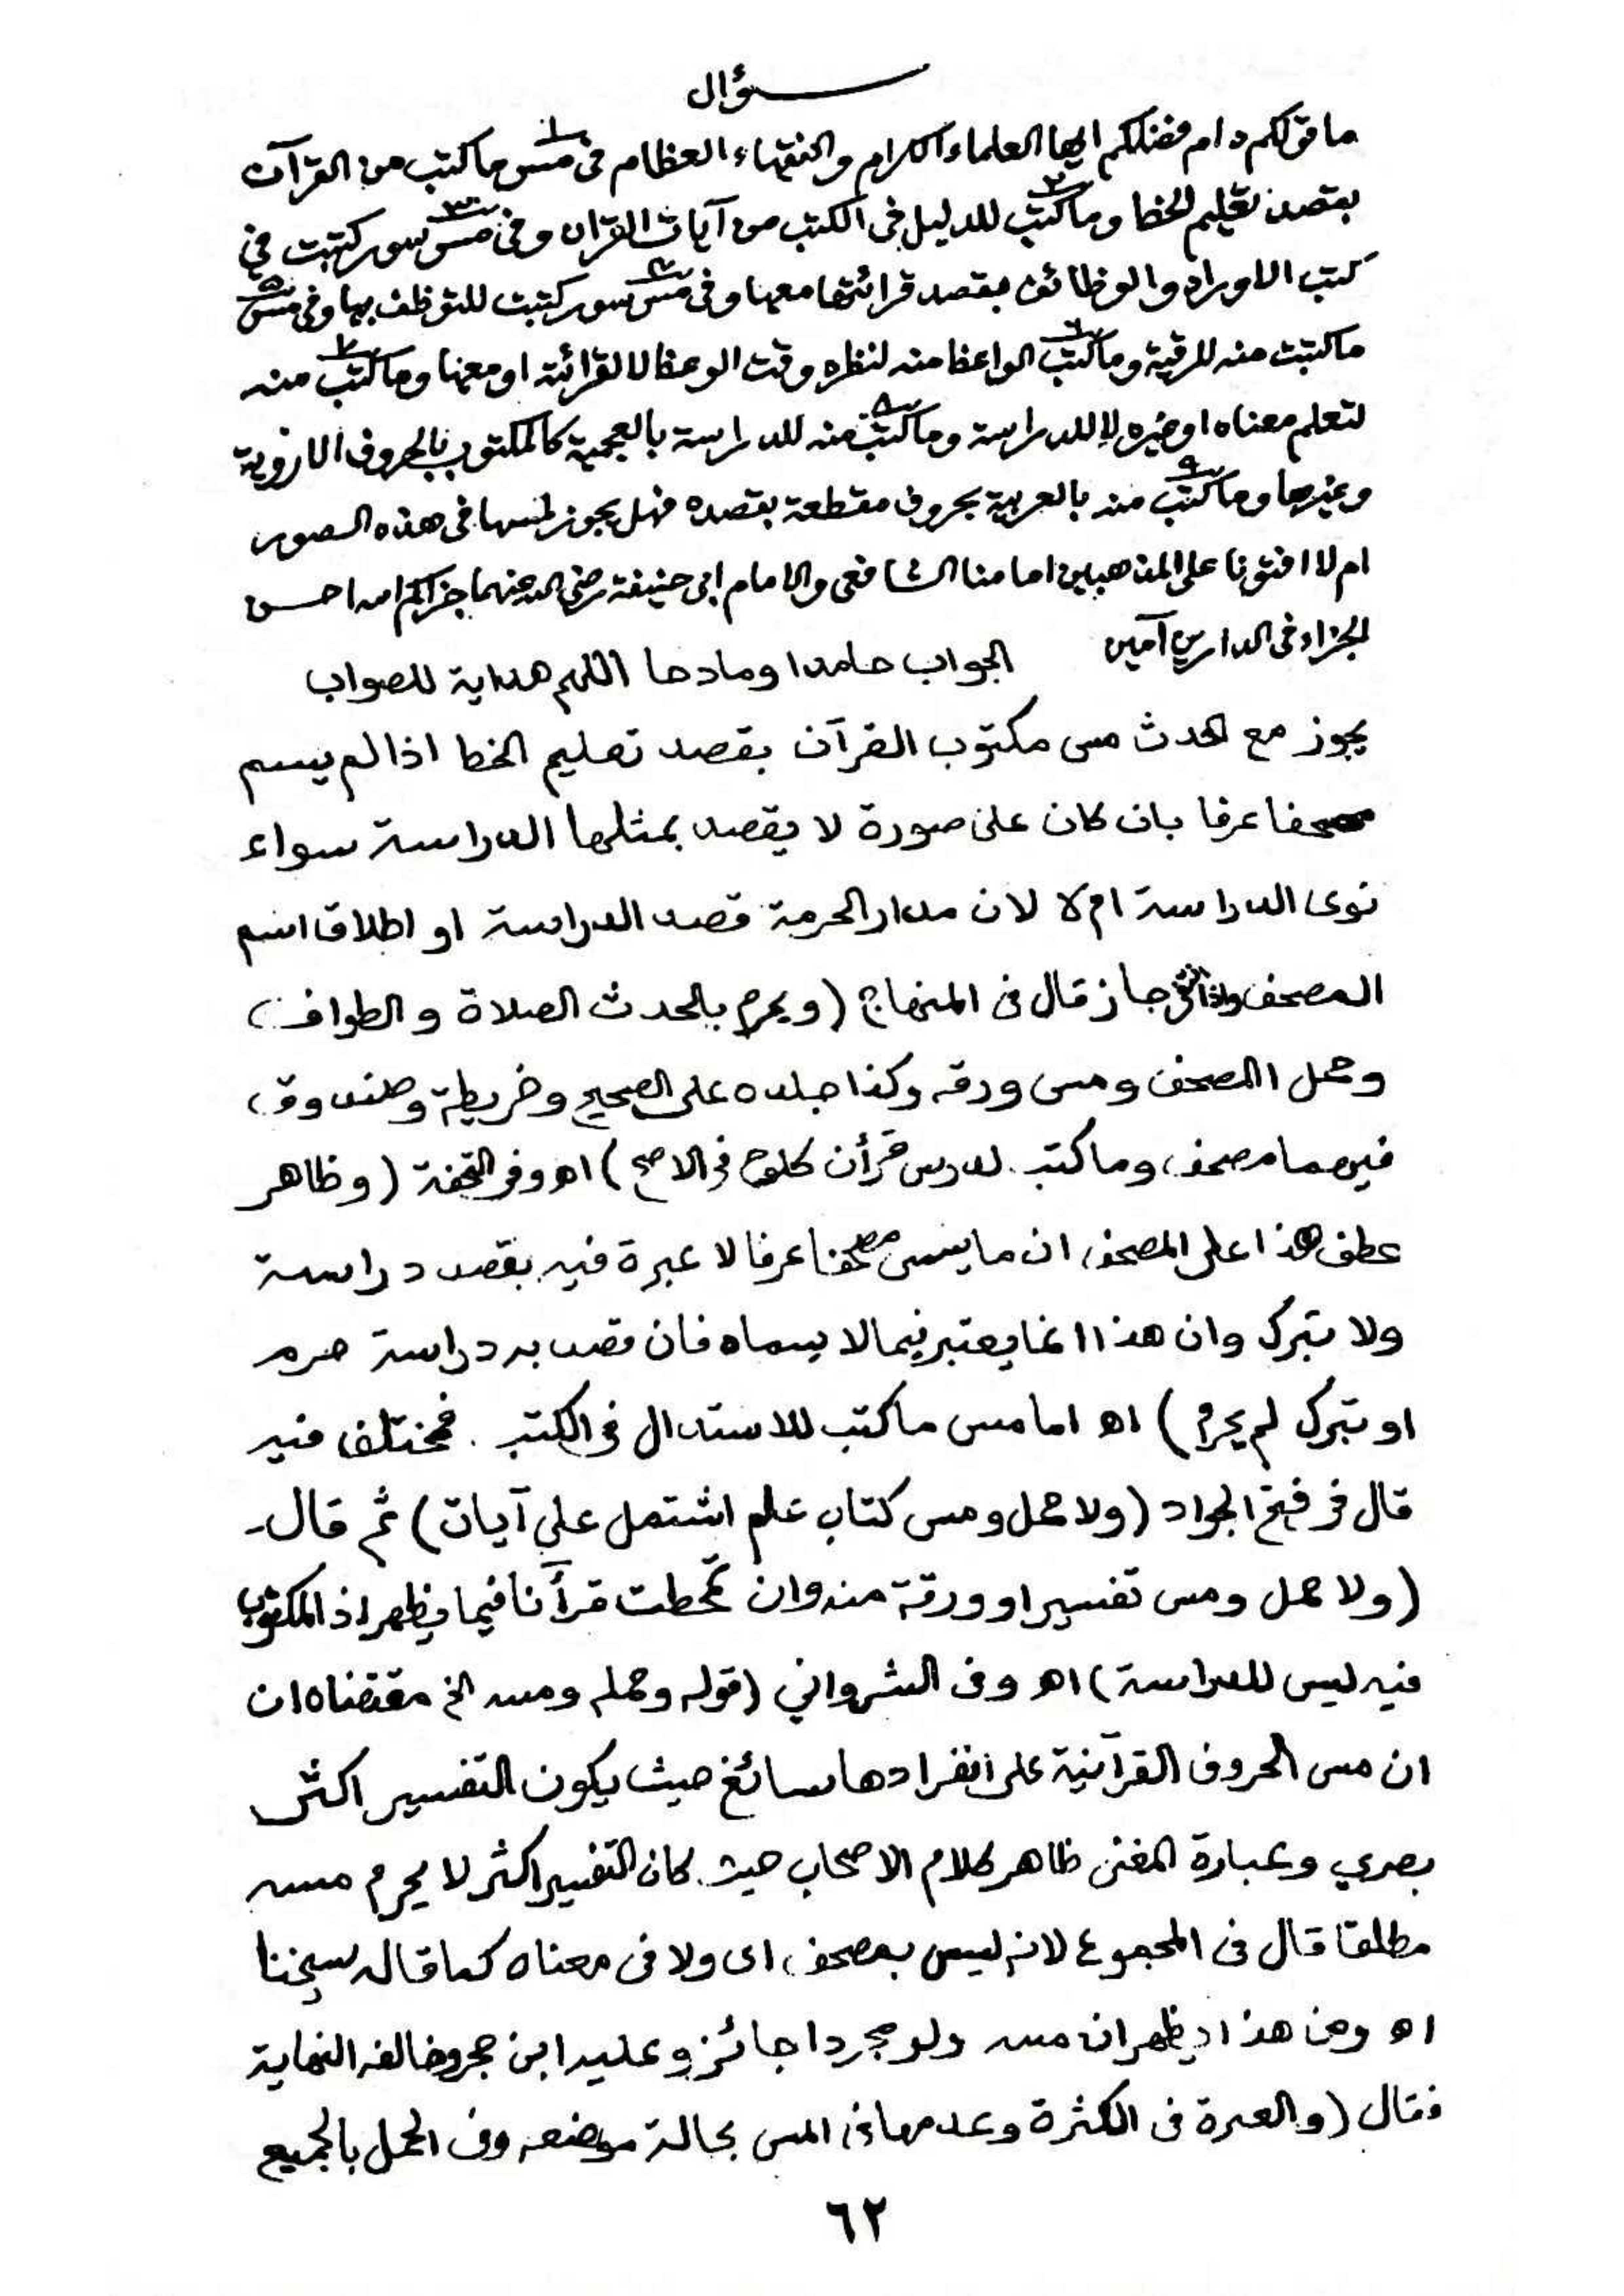 سؤال
ما قولكم دام فضلكم ايها العلماء الكرام والفقهاء العظام فى مس١ ما كتب من القرآن
بقصد تعليم الخط وما كتب٢ للدليل فى الكتب من آيات القران وفى مس٣ سور كتبت فى
كتب الاوراد والوظائف بقصد قرائتها معها وفى مس٤ سور كتبت للتوظف بها وفى مس٥
ما كتبت منه للرقية وما كتب٦ الواعظ منه لنظره وقت الوعظ لا لقرائته او معها وما كتب٧ منه
لتعلم معناه او غيره لا للدراسة وما كتب٨ منه للدراسة بالعجمية كالمكتوب بالحروف الاروية
وغيرها وما كتب٩ منه بالعربية بحروف مقطعة بقصده فهل يجوز لمسها فى هذه الصور
ام لا افتونا على المذهبين امامنا الشافعى والامام ابى حنيفة رضي الله عنهما جزاكم الله احسن
الجزاء فى الدارين آمين الجواب حامدا ومادحا اللهم هداية للصواب
يجوز مع الحدث مس مكتوب القرآن بقصد تعليم الخط اذا لم يسم
مصحفا عرفا بان كان على صورة لا يقصد بمثلها الدراسة سواء
نوى الدراسة ام لا لان مدار الحرمة قصد الدراسة او اطلاق اسم
المصحف واذا انتفى جاز قال فى المنهاج (ويحرم بالحدث الصلاة والطواف)
وحمل المصحف ومس ورقه وكذا جلده على الصحيح وخريطة وصندوق
فيهما مصحف وما كتب لدرس قرأن كلوح فى الاصح) اه وفى التحفة (وظاهر
عطف هذا على المصحف ان ما يسمى مصحفا عرفا لا عبرة فيه بقصد دراسة
ولا تبرك وان هذا انما يعتبر فيما لا يسماه فان قصد به دراسة حرم
او تبرك لم يحرم) اه اما مس ما كتب للاستدلال فى الكتب . فمختلف فيه
قال فى فتح الجواد (ولا حمل ومس كتاب علم اشتمل على آيات) ثم قال
(ولا حمل ومس تفسير او ورقة منه وان تمحطت قرأنا فيما يظهر اذ المكتوب
فيه ليس للدراسة) اه وفى الشرواني (قوله وحمله ومسه الخ مقتضاه ان
ان مس الحروف القرآنية على انفرادها سائغ حيث يكون التفسير اكثر
بصري وعبارة المغنى ظاهر كلام الاصحاب حيث كان التفسير اكثر لا يحرم مسه
مطلقا قال فى المجموع لانه ليس بمصحف اى ولا فى معناه كما قاله شيخنا
اه ومن هذا يظهر ان مسه ولو مجردا جائز وعليه ابن حجر وخالفه النهاية
فقال (والعبرة فى الكثرة وعدمها فى المس بحالة موضعه وفى الحمل بالجميع
٦٢